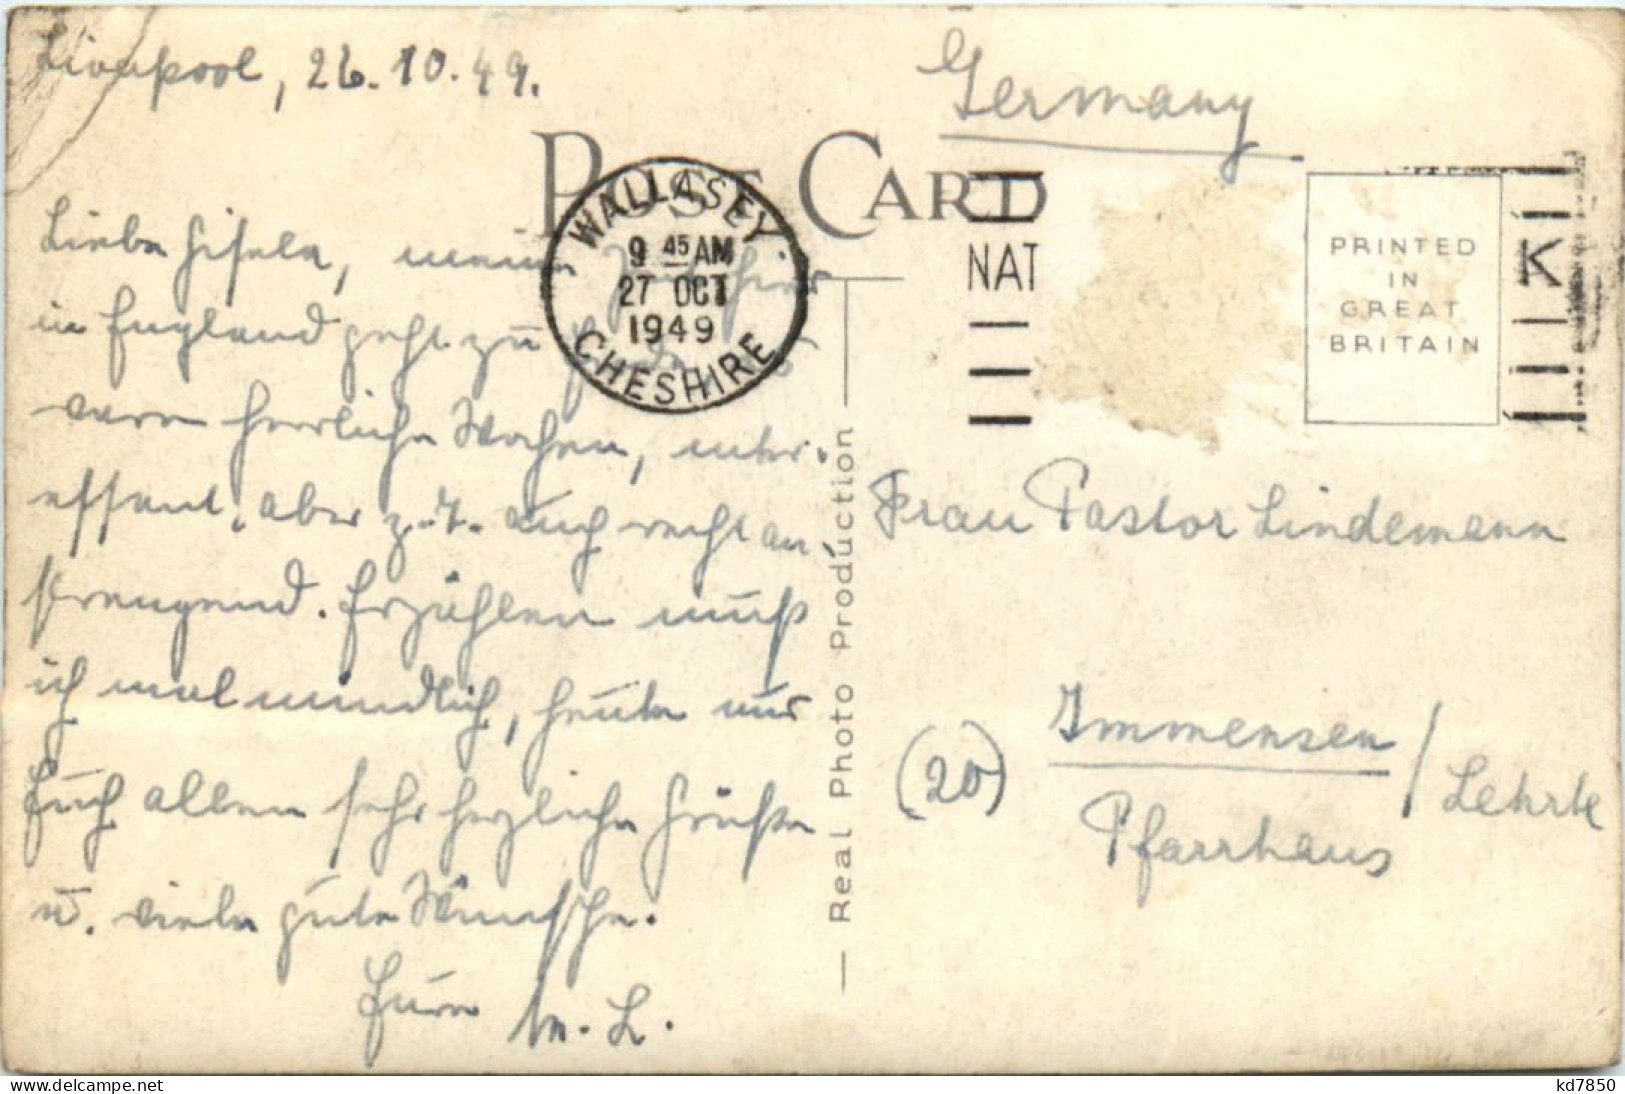 Liverpool, 26.10.49.
Liebe Gisela, meine Zeit hier
in England geht zu Ende. Es
waren herrliche Wochen, inter-
essant, aber z. T. auch recht an
strengend. Erzählen muß
ich mal mündlich, heute nur
Euch allen sehr herzliche Grüße
u. viele gute Wünsche.
Eure M. L.
POST CARD
WALLASEY
9 45 AM
27 OCT
1949
CHESHIRE
NAT
K
PRINTED
IN
GREAT
BRITAIN
Real Photo Production
Germany
Frau Pastor Lindemann
(20) Immensen / Lehrte
Pfarrhaus
kd7850